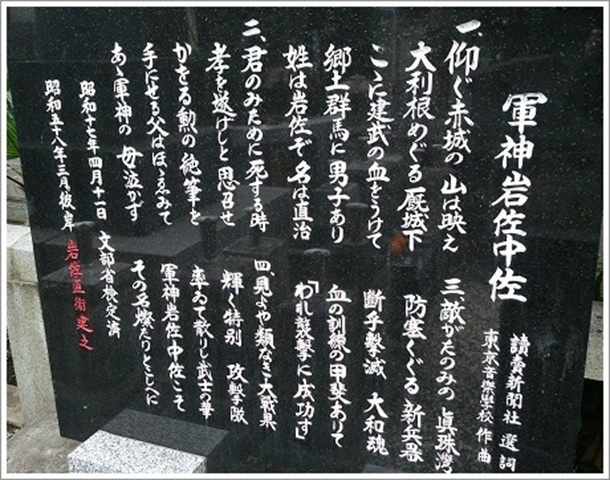 軍神岩佐中佐
讀賣新聞社 選詞
東京音樂學校 作曲
一、仰ぐ赤城の 山は映え
大利根めぐる 厩城下
こゝに建武の 血をうけて
郷土群馬に 男子あり
姓は岩佐ぞ 名は直治
二、君のみために 死する時
孝を遂げしと 思召せ
かをる勲の 絶筆を
手にせる父は ほゝゑみて
あゝ軍神の 母泣かず
三、敵がたのみの 眞珠湾
防塞くぐる 新兵器
断乎撃滅 大和魂
血の訓練の 甲斐ありて
「われ襲撃に 成功す」
四、見よや類なき 大戰果
輝く特別 攻撃隊
率ゐて散りし 武士の華
軍神岩佐 中佐こそ
その名燦たり とこしへに
昭和十七年四月十一日 文部省検定済
昭和五十八年三月彼岸 岩佐直衛建之